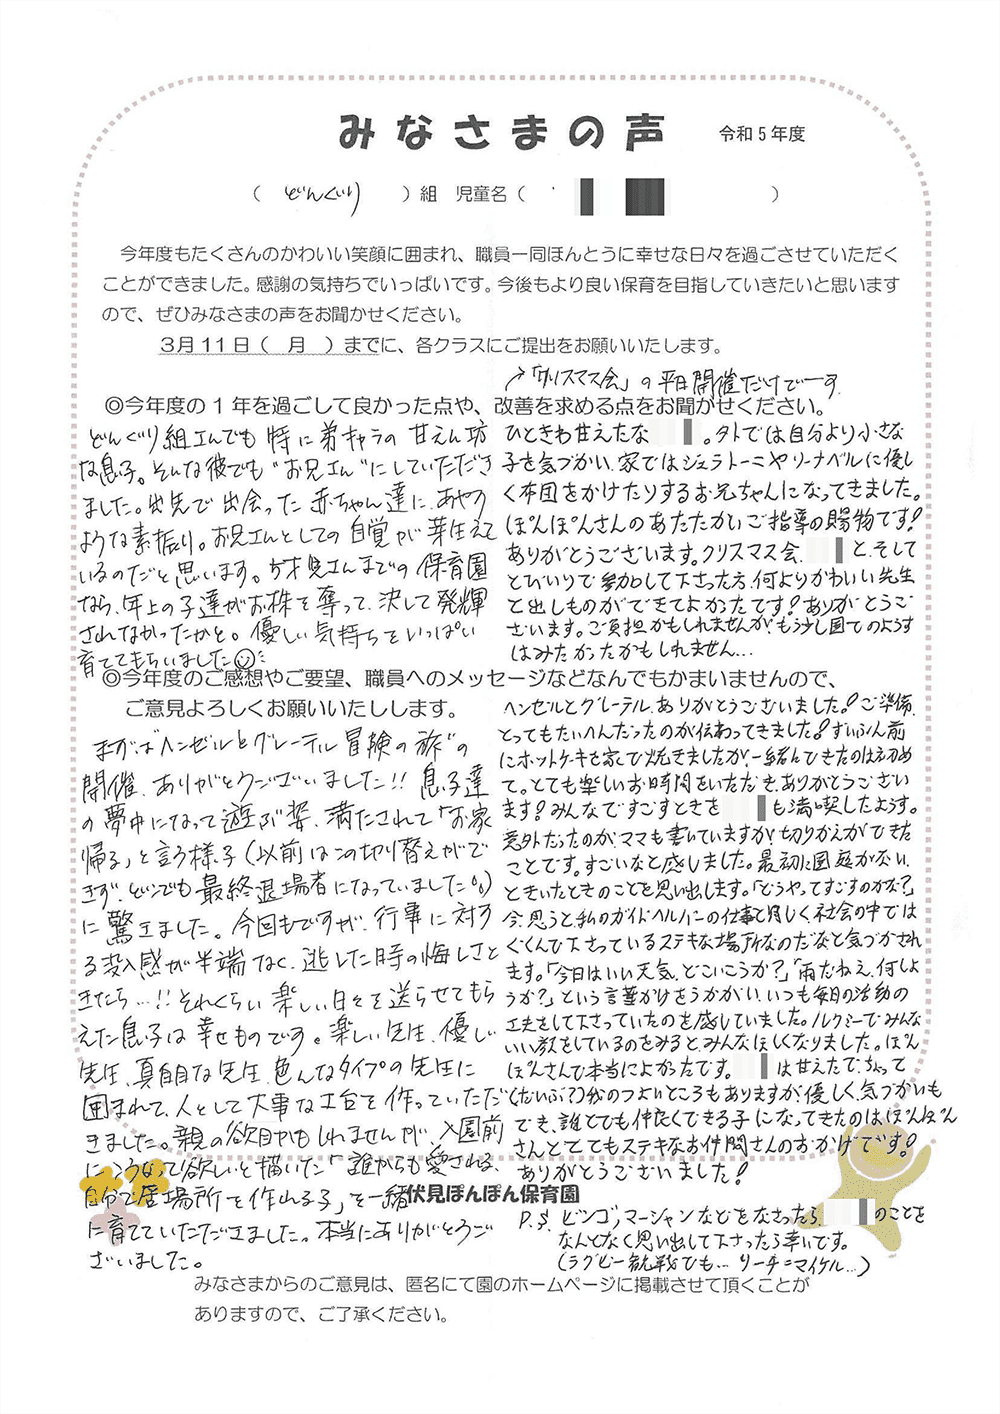 みなさまの声 令和5年度
(どんぐり)組 児童名( )
今年度もたくさんのかわいい笑顔に囲まれ、職員一同ほんとうに幸せな日々を過ごさせていただく
ことができました。感謝の気持ちでいっぱいです。今後もより良い保育を目指していきたいと思います
ので、ぜひみなさまの声をお聞かせください。
3月11日(月)までに、各クラスにご提出をお願いいたします。
◎今年度の1年を過ごして良かった点や、改善を求める点をお聞かせください。
どんぐり組さんでも特に弟キャラの甘えん坊
な息子。そんな彼でも“お兄さん”にしていただき
ました。出先で出会った赤ちゃん達に、あやす
ような素振り。お兄さんとしての自覚が芽生えて
いるのだと思います。5才児さんまでの保育園
なら、年上の子達がお株を奪って、決して発揮
されなかったかと。優しい気持ちをいっぱい
育ててもらいました☺
→「クリスマス会」の平日開催だけでーす
ひときわ甘えたな 。外では自分より小さな
子を気づかい、家ではジェラトーニやリーナベルに優し
く布団をかけたりするお兄ちゃんになってきました。
ぽんぽんさんのあたたかいご指導の賜物です!
ありがとうございます。クリスマス会、 と、そして
とびいりで参加して下さった方、何よりかわいい先生
と出しものができてよかったです!ありがとうご
ざいます。ご負担かもしれませんが、もう少し園でのようす
はみたかったかもしれません…
◎今年度のご感想やご要望、職員へのメッセージなどなんでもかまいませんので、
ご意見よろしくお願いいたしします。
まずは“ヘンゼルとグレーテル冒険の旅”の
開催、ありがとうございました!! 息子達
の夢中になって遊ぶ姿、満たされて「お家
帰る」と言う様子(以前はこの切り替えがで
きず、どこでも最終退場者になっていました)
に驚きました。今回もですが、行事に対す
る没入感が半端なく、逃した時の悔しさと
きたら…!! それくらい楽しい日々を送らせてもら
えた息子は幸せものです。楽しい先生、優しい
先生、真面目な先生、色んなタイプの先生に
囲まれて、人として大事な土台を作っていただ
きました。親の欲目かもしれませんが、入園前
にこうなって欲しいと描いた「誰からも愛される、
自分で居場所を作れる子」を一緒
に育てていただきました。本当にありがとうご
ざいました。
ヘンゼルとグレーテル、ありがとうございました!ご準備、
とってもたいへんだったのが伝わってきました!ずいぶん前
にホットケーキを家で焼きましたが、一緒んできたのは初め
て。とても楽しいお時間をいただき、ありがとうござい
ます!みんなですごすときを も満喫したようす。
意外だったのが、ママも書いていますが、切りかえができた
ことです。すごいなと感じました。最初に園庭がない、
ときいたときのことを思い出します。「どうやってすごすのかな?」
今、思うと私のガイドヘルパーの仕事と同じく、社会の中では
ぐくんで下さっているステキな場所なのだなと気づかされ
ます。「今日はいい天気、どこいこうか?」「雨だねえ、何しよ
うか?」という言葉かけをうかがい、いつも毎日の活動の
工夫をして下さっていたのを感じていました。ルクミーでみんな
いい顔をしているのをみるとみんなほしくなりました。ぽん
ぽんさんで本当によかったです。 は甘えたで、ちょって
(だいぶ?)我のつよいところもありますが、優しく、気づかいも
でき、誰とでも仲良くできる子になってきたのは、ぽんぽん
さんと、とてもステキなお仲間さんのおかげです!
ありがとうございました!
伏見ぽんぽん保育園
P.S. ビンゴ、マージャンなどをなさったら、 のことを
なんとなく思い出して下さったら幸いです。
(ラグビー観戦でも… リーチ=マイケル…)
みなさまからのご意見は、匿名にて園のホームページに掲載させて頂くことが
ありますので、ご了承ください。